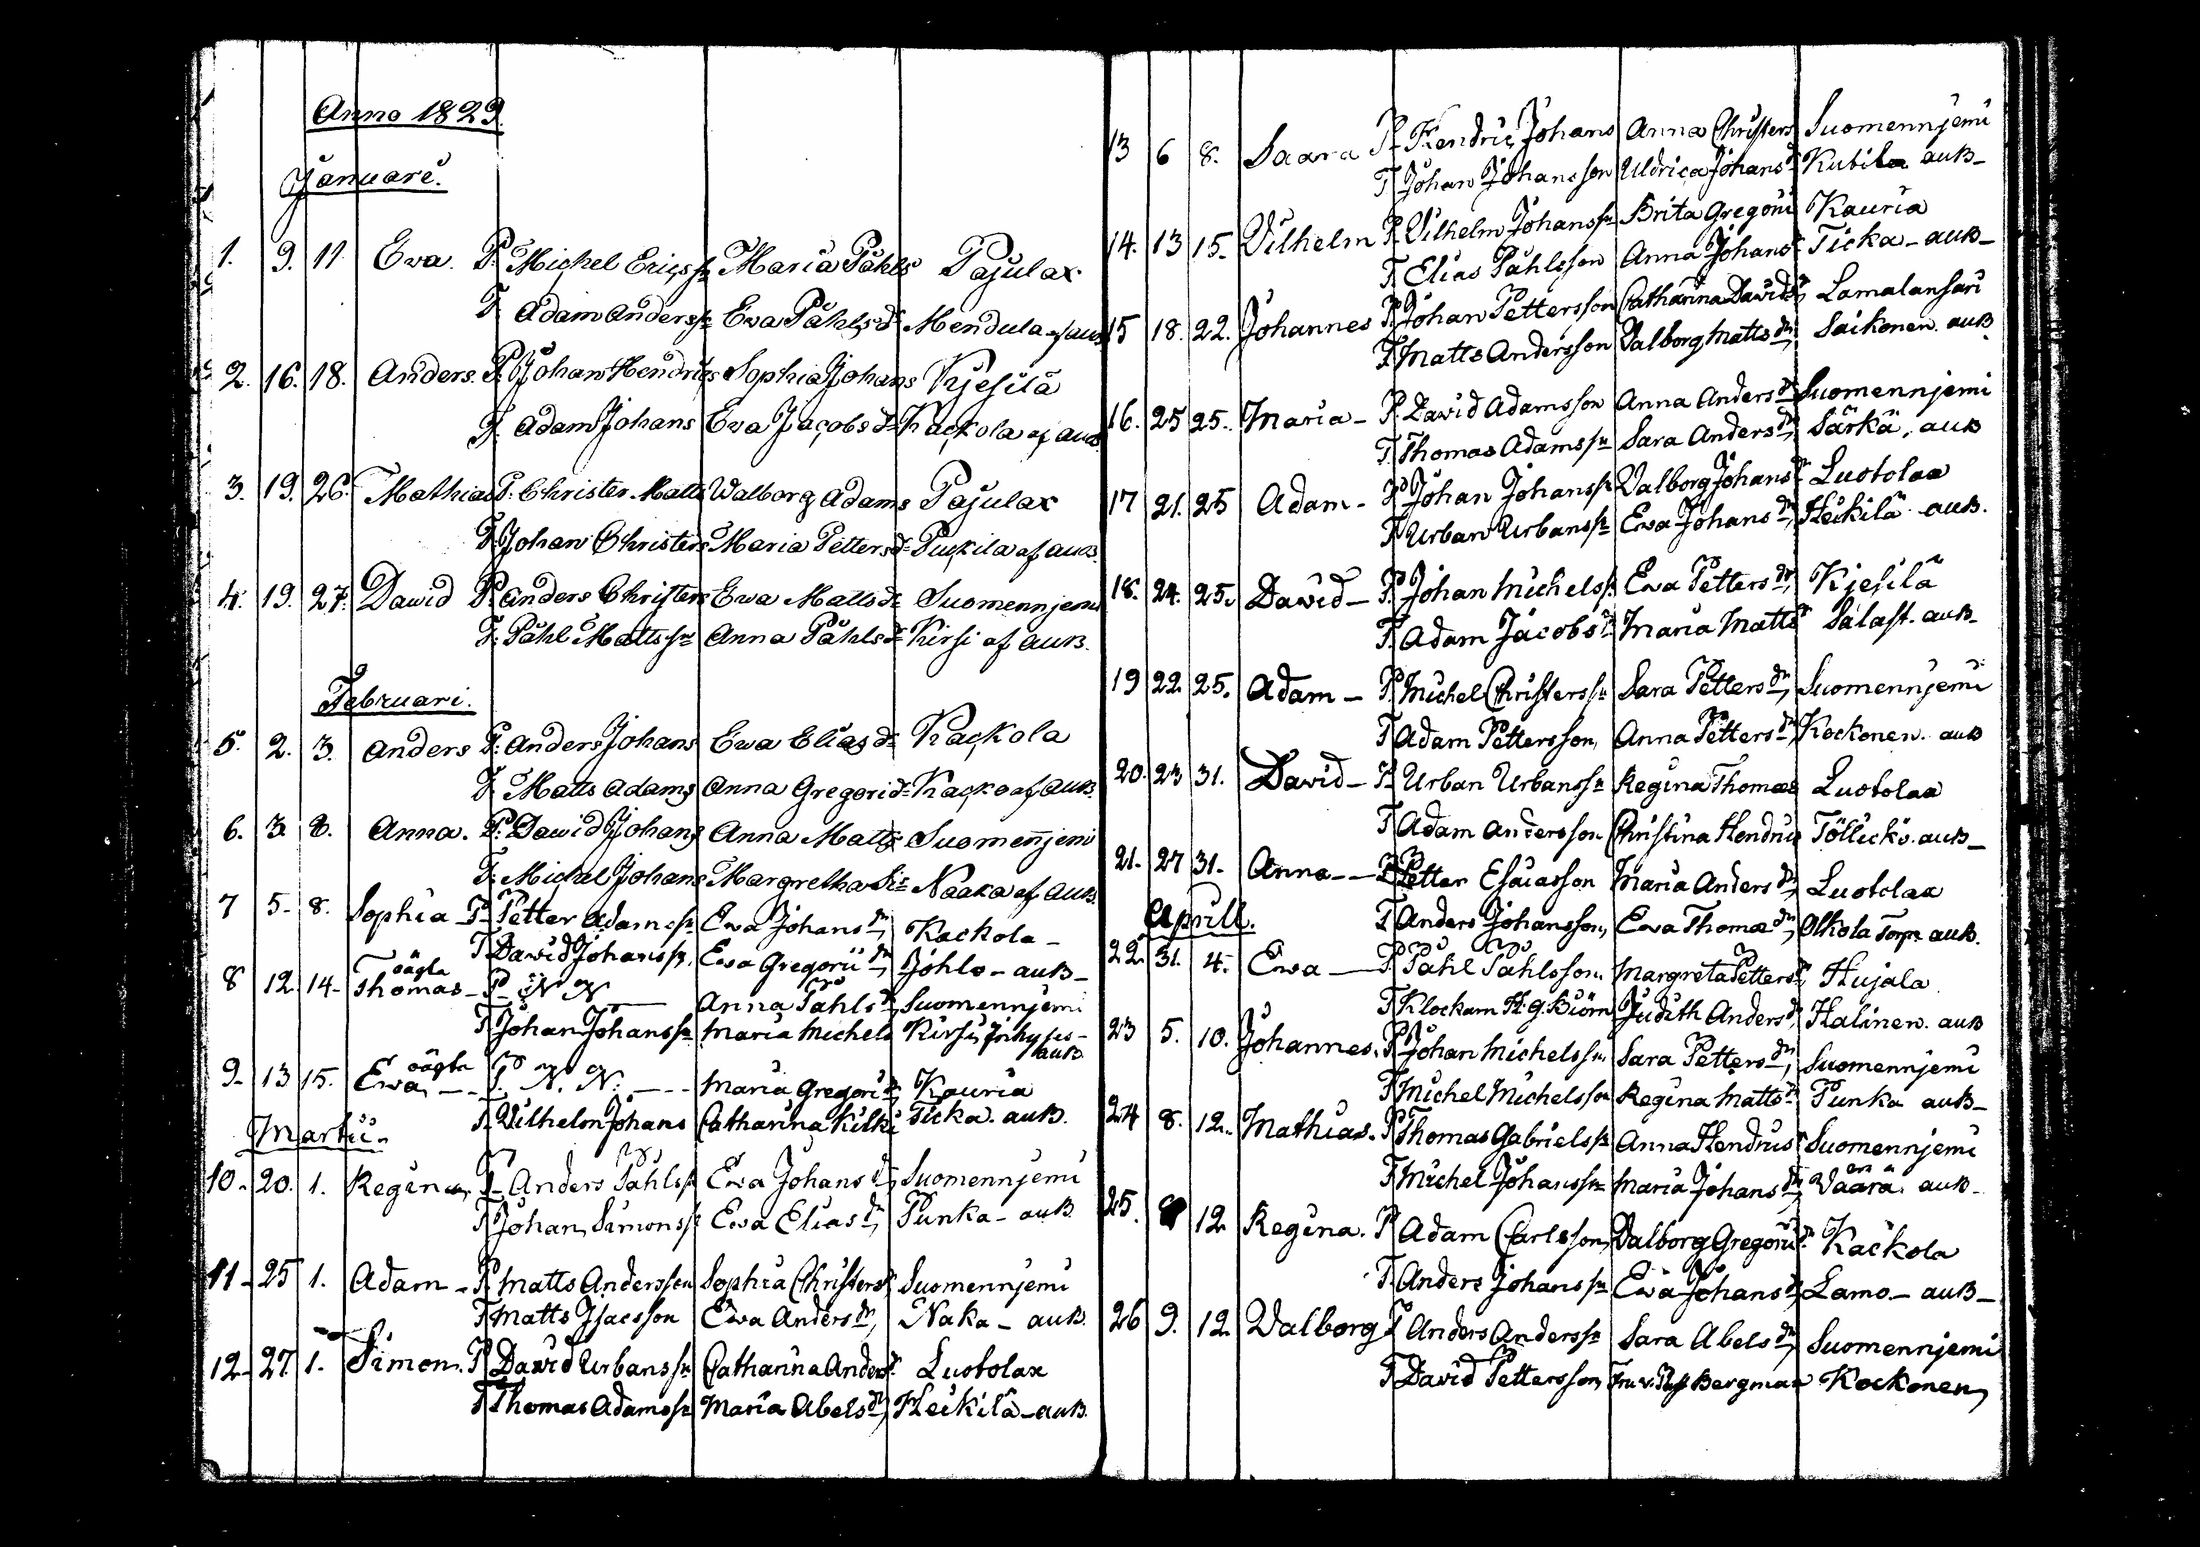 Anno 1829.
Januari.
1. 9. 11 Eva. P. Michel Ericss: Maria Påhls Pajulax
F. Adam Anderss: Eva Påhls d: Mendula af auß
2. 16. 18. Anders. P. Johan Hendrics Sophia Johans Kjesilä
F. Adam Johans Eva Jacobs d: Kackola af auß
3. 19. 26. Mathias P. Christer Matts Walborg Adams Pajulax
F. Johan Christers Maria Petters d: Puckila af auß.
4. 19. 27. Dawid P. Anders Christers Ewa Matts d: Suomennjemi
F. Påhl Matts sn Anna Påhls d: Kirsi af auß.
Februari.
5. 2. 3. Anders P. Anders Johans Ewa Elias d: Kackola
F. Matts Adams Anna Gregori d: Kacko af auß.
6. 3 8. Anna. P. Dawid Johans Anna Matts Suomenjemi
F. Michel Johans Margretha Naaka af auß
7 5- 8. Sophia P. Petter Adamss: Ewa Johans dr, Kackola-
F. David Johanss. Ewa Gregorii dr, Johlo- auß-
8 12 14- Thomas oägta P. N N Anna Påhls dr, Suomennjemi
F. Johan Johanss: Maria Michels Kirsi, auß
9- 13 15. Ewa oägta - P. N. N. --- Maria Gregorii dr, Kauria
F. Vilhelm Johans Catharina Kilki Ticka. auß.
Martii.
10- 20. 1. Regina P- Anders Påhlss: Ewa Johans dr, Suomennjemi
F. Johan Simonss: Ewa Elias dr, Punka- auß
11- 25 1. Adam- P. Matts Andersson Sophia Christers dr Suomennjemi
F Matts Isacsson Ewa Anders dr, Naka- auß.
12- 27 1. Simon. P David Urbanss: Catharina Anders dr Luotolax
F Thomas Adamss: Maria Abels dr, Heikilä-auß.
13 6 8. Saara P- Hendric Johans Anna Christers Suomennjemi
F Johan Johansson Uldrica Johans dr Kubila auß-
14. 13 15. Vilhelm P. Vilhelm Johanss: Brita Gregorii Kauria
F. Elias Påhlsson Anna Johans dr Ticka- auß-
15 18. 22. Johannes P. Johan Pettersson Catharina Davids dr, Lamalansari
F. Matts Andersson Valborg Matts dr, Saikonen. auß
16. 25 25. Maria- P. David Adamsson Anna Anders dr Suomennjemi
F. Thomas Adamss: Sara Anders dr, Särkä, auß
17 21. 25 Adam- P Johan Johanss: Valborg Johans dr Luotolax
F Urban Urbanss: Ewa Johans dr, Heikilä auß.
18. 24. 25. David- P. Johan Michelss: Ewa Petters dr, Kjesilä
F. Adam Jacobs: Maria Matts dr Salast. auß-
19 22 25. Adam- P Michel Christerss: Sara Petters dr, Suomennjemi
F Adam Pettersson, Anna Petters dr, Kockonen. auß
20. 23 31. David- P- Urban Urbanss: Regina Thomæ Luotolax
F Adam Andersson Christina Hendrics Töllickö. auß-
21. 27 31. Anna-- P Petter Esaiasson Maria Anders dr, Luotolax
F Anders Johansson, Ewa Thomæ dr, Olkola Torp. auß.
Aprill.
22. 31. 4. Ewa- P Påhl Påhlsson. Margreta Petters dr Hujala
F Klockarn H. G. Biörn Judith Anders dr, Halinen. auß
23 5. 10. Johannes. P Johan Michelssn. Sara Petters dr, Suomennjemi
F Michel Michelsson Regina Matts dr Punka auß-
24 8. 12. Mathias. P Thomas Gabrielss: Anna Hendrics dr Suomennjemi
F Michel Johanss: Maria Johans dr, Väärä. auß-
25. 8 12 Regina. P Adam Carlsson, Valborg Gregorii dr. Kackola
F. Anders Johanss: Ewa Johans dr, Lamo- auß-
26 9. 12. Valborg P Anders Anderss: Sara Abels dr, Suomennjemi
F David Pettersson, Fru Bergman Kockonen,